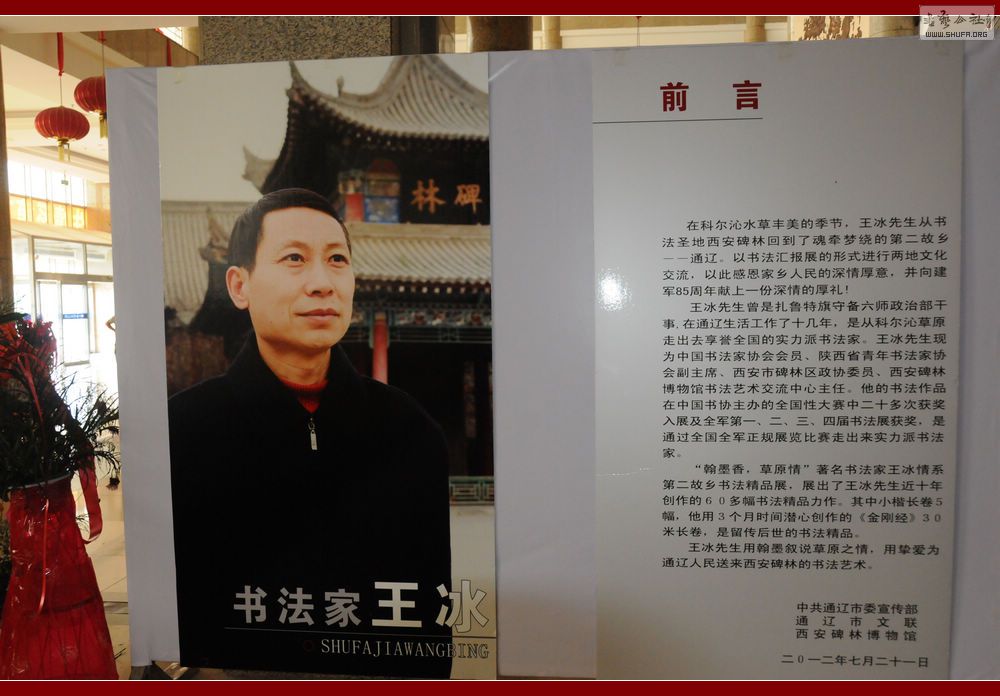 书艺公社
WWW.SHUFA.ORG
碑林
书法家王冰
SHUFAJIAWANGBING
前 言
在科尔沁水草丰美的季节，王冰先生从书
法圣地西安碑林回到了魂牵梦绕的第二故乡
——通辽。以书法汇报展的形式进行两地文化
交流，以此感恩家乡人民的深情厚意，并向建
军85周年献上一份深情的厚礼！
王冰先生曾是扎鲁特旗守备六师政治部干
事.在通辽生活工作了十几年，是从科尔沁草原
走出去享誉全国的实力派书法家。王冰先生现
为中国书法家协会会员、陕西省青年书法家协
会副主席、西安市碑林区政协委员、西安碑林
博物馆书法艺术交流中心主任。他的书法作品
在中国书协主办的全国性大赛中二十多次获奖
入展及全军第一、二、三、四届书法展获奖，是
通过全国全军正规展览比赛走出来实力派书法
家。
“翰墨香，草原情”著名书法家王冰情系
第二故乡书法精品展，展出了王冰先生近十年
创作的60多幅书法精品力作。其中小楷长卷5
幅，他用3个月时间潜心创作的《金刚经》30
米长卷，是留传后世的书法精品。
王冰先生用翰墨叙说草原之情，用挚爱为
通辽人民送来西安碑林的书法艺术。
中共通辽市委宣传部
通辽市文联
西安碑林博物馆
二0一二年七月二十一日